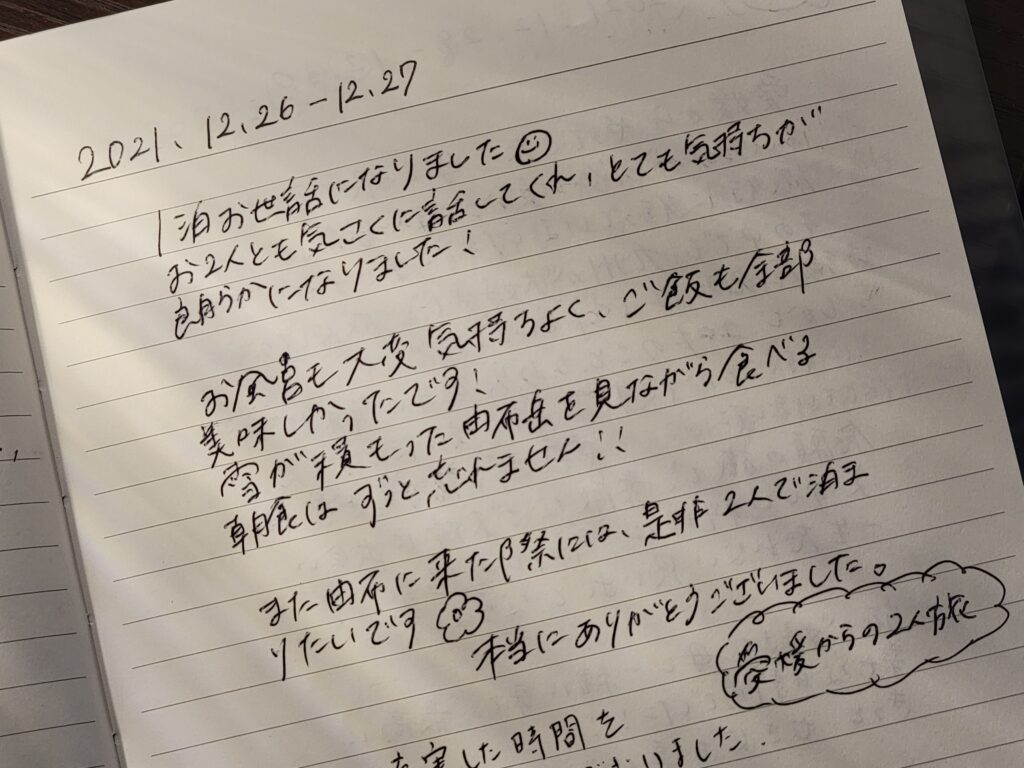 2021、12.26-12.27
1泊お世話になりました
お2人とも気さくに話してくれ、とても気持ちが
朗らかになりました!
お風呂も大変気持ちよく、ご飯も全部
美味しかったです!
雪が積もった由布岳を見ながら食べる
朝食はずっと忘れません!!
また由布に来た際には、是非2人で泊ま
りたいです
本当にありがとうございました。
愛媛からの2人旅
実した時間を
いました.